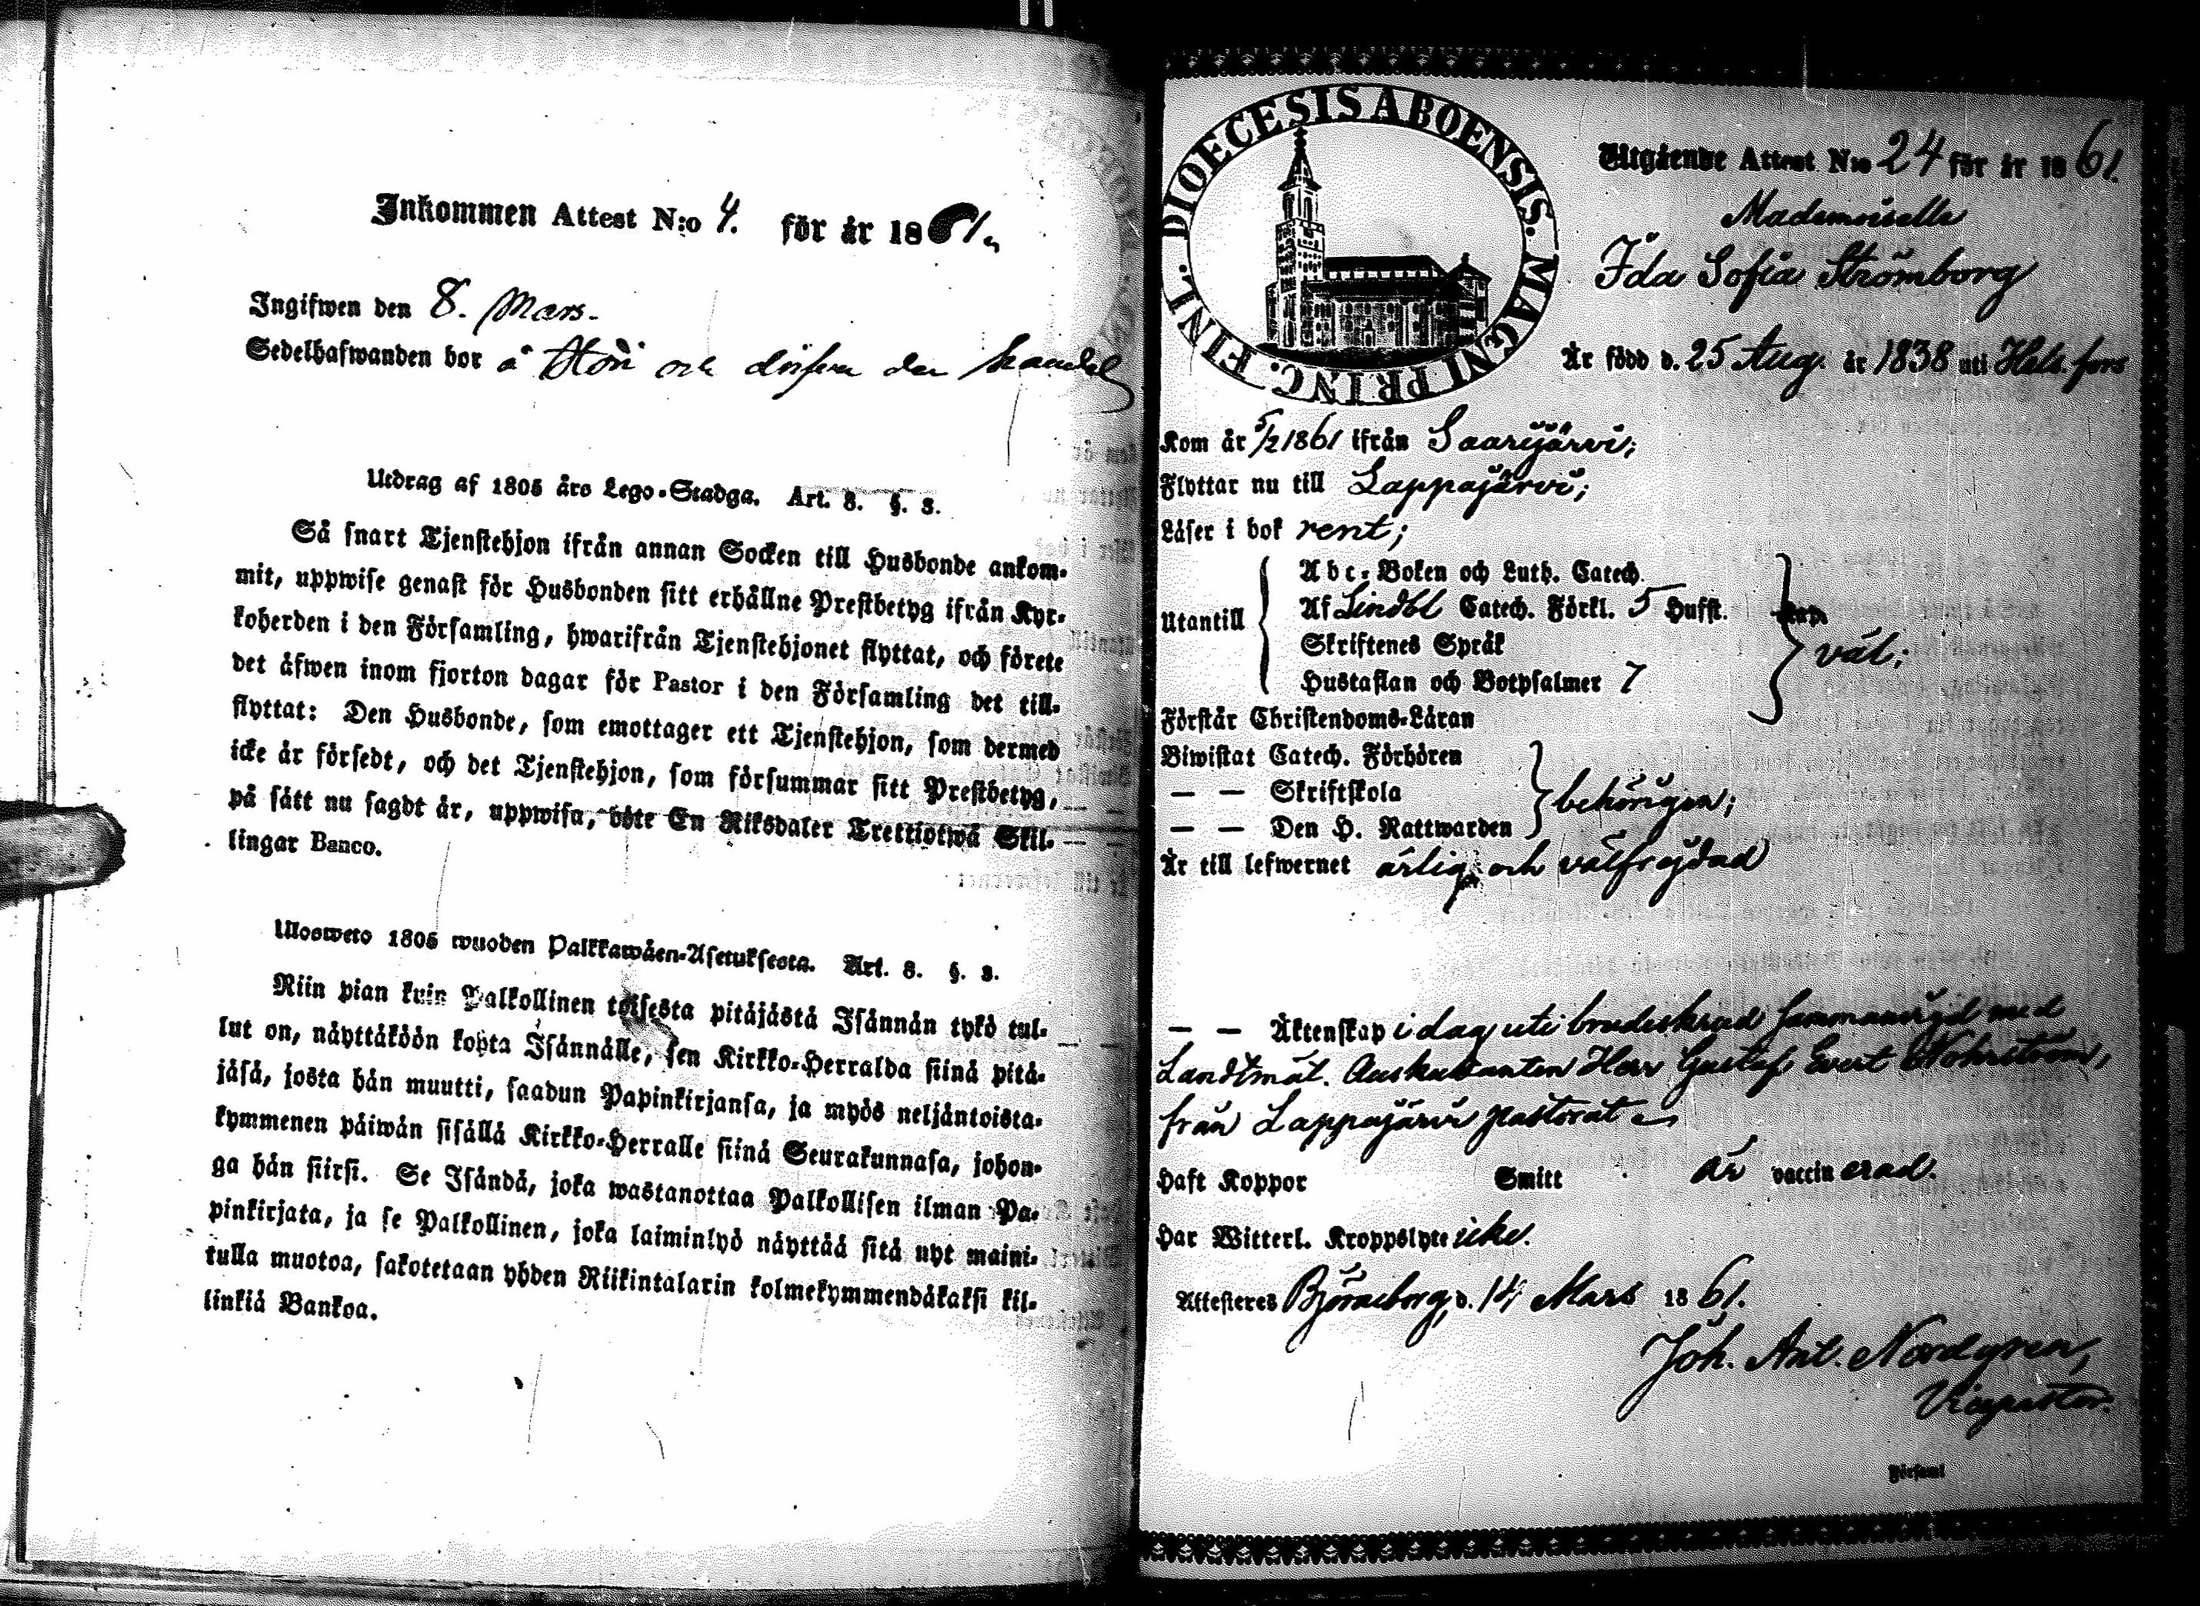 Inkommen Attest N:o 4. för år 1861.
Ingifwen den 8. Mars.
Sedelhafwanden bor å och der
Utdrag af 1805 års Lego-Stadga. Art. 8. §. 3.
Så snart Tjenstehjon ifrån annan Socken till Husbonde ankom-
mit, uppwise genast för Husbonden sitt erhållne Prestbetyg ifrån Kyr-
koherden i den Församling, hwarifrån Tjenstehjonet flyttat, och förete
det äfwen inom fjorton dagar för Pastor i den Församling det till-
flyttat: Den Husbonde, som emottager ett Tjenstehjon, som dermed
icke är försedt, och det Tjenstehjon, som försummar sitt Prestbetyg,
på sätt nu sagdt är, uppwisa, böte En Riksdaler Trettiotwå Skil-
lingar Banco.
Ulosweto 1805 wuoden Palkkawäen-Asetuksesta. Art. 8. §. 3.
Niin pian kuin Palkollinen toisesta pitäjästä Isännän tykö tul-
lut on, näyttäköön kohta Isännälle, sen Kirkko-Herralda siinä pitä-
jäsä, josta hän muutti, saadun Papinkirjansa, ja myös neljäntoista-
kymmenen päiwän sisällä Kirkko-Herralle siinä Seurakunnasa, johon-
ga hän siirsi. Se Isändä, joka wastanottaa Palkollisen ilman Pa-
pinkirjata, ja se Palkollinen, joka laiminlyö näyttää sitä nyt maini-
tulla muotoa, sakotetaan yhden Riikintalarin kolmekymmendäkaksi kil-
linkiä Bankoa.
DIOECESIS ABOENSIS. MAGNI PRINC. FINL.
Utgående Attest N:o 24 för år 1861.
Mademoiselle
Ida Sofia Strömborg
Är född d. 25 Aug. år 1838 uti Hels.fors
Kom år 5/2 1861 ifrån Saarijärvi;
Flyttar nu till Lappajärvi;
Läser i bok rent;
Utantill
Abc-Boken och Luth. Catech.
Af Lindbl Catech. Förkl. 5 Hufst.
Skriftenes Språk
Hustaflan och Botpsalmer 7
väl;
Förstår Christendoms-Läran
Biwistat Catech. Förhören
— — Skriftskola
— — Den H. Nattwarden
behörigen;
Är till lefwernet ärlig och välfrejdad
— — Äktenskap i dag uti brudeskrud sammanvigd med
Landtmät. Auskultanten Herr Gustaf Evert Nohrström,
från Lappajärvi pastorat
Haft Koppor Smitt är vaccinerad.
Har Witterl. Kroppslyte icke.
Attesteres Björneborg, d. 14 Mars 1861.
Joh. Ant. Nordgren,
Vicepastor.
Församl